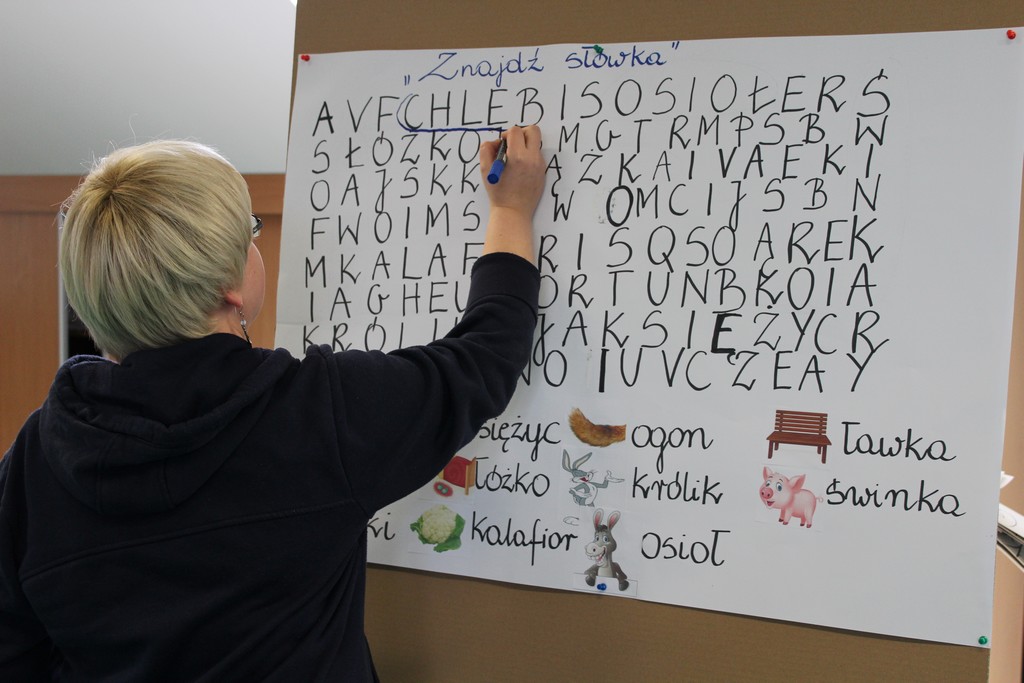 „Znajdź słówka”
AVFCHLEBISOSIOŁERŚ
SŁÓŻKO MGTRMPSBW
OAJSKK ĄŻKAIVAEKI
FWOIMS WOMCIJSBN
MKALAF RISQSOAREK
IAGHEU ORTUNBKOIA
KRÓLI JAKSIĘŻYCR
NO IUVCZEAY
siężyc ogon ławka
łóżko królik świnka
ki kalafior osioł